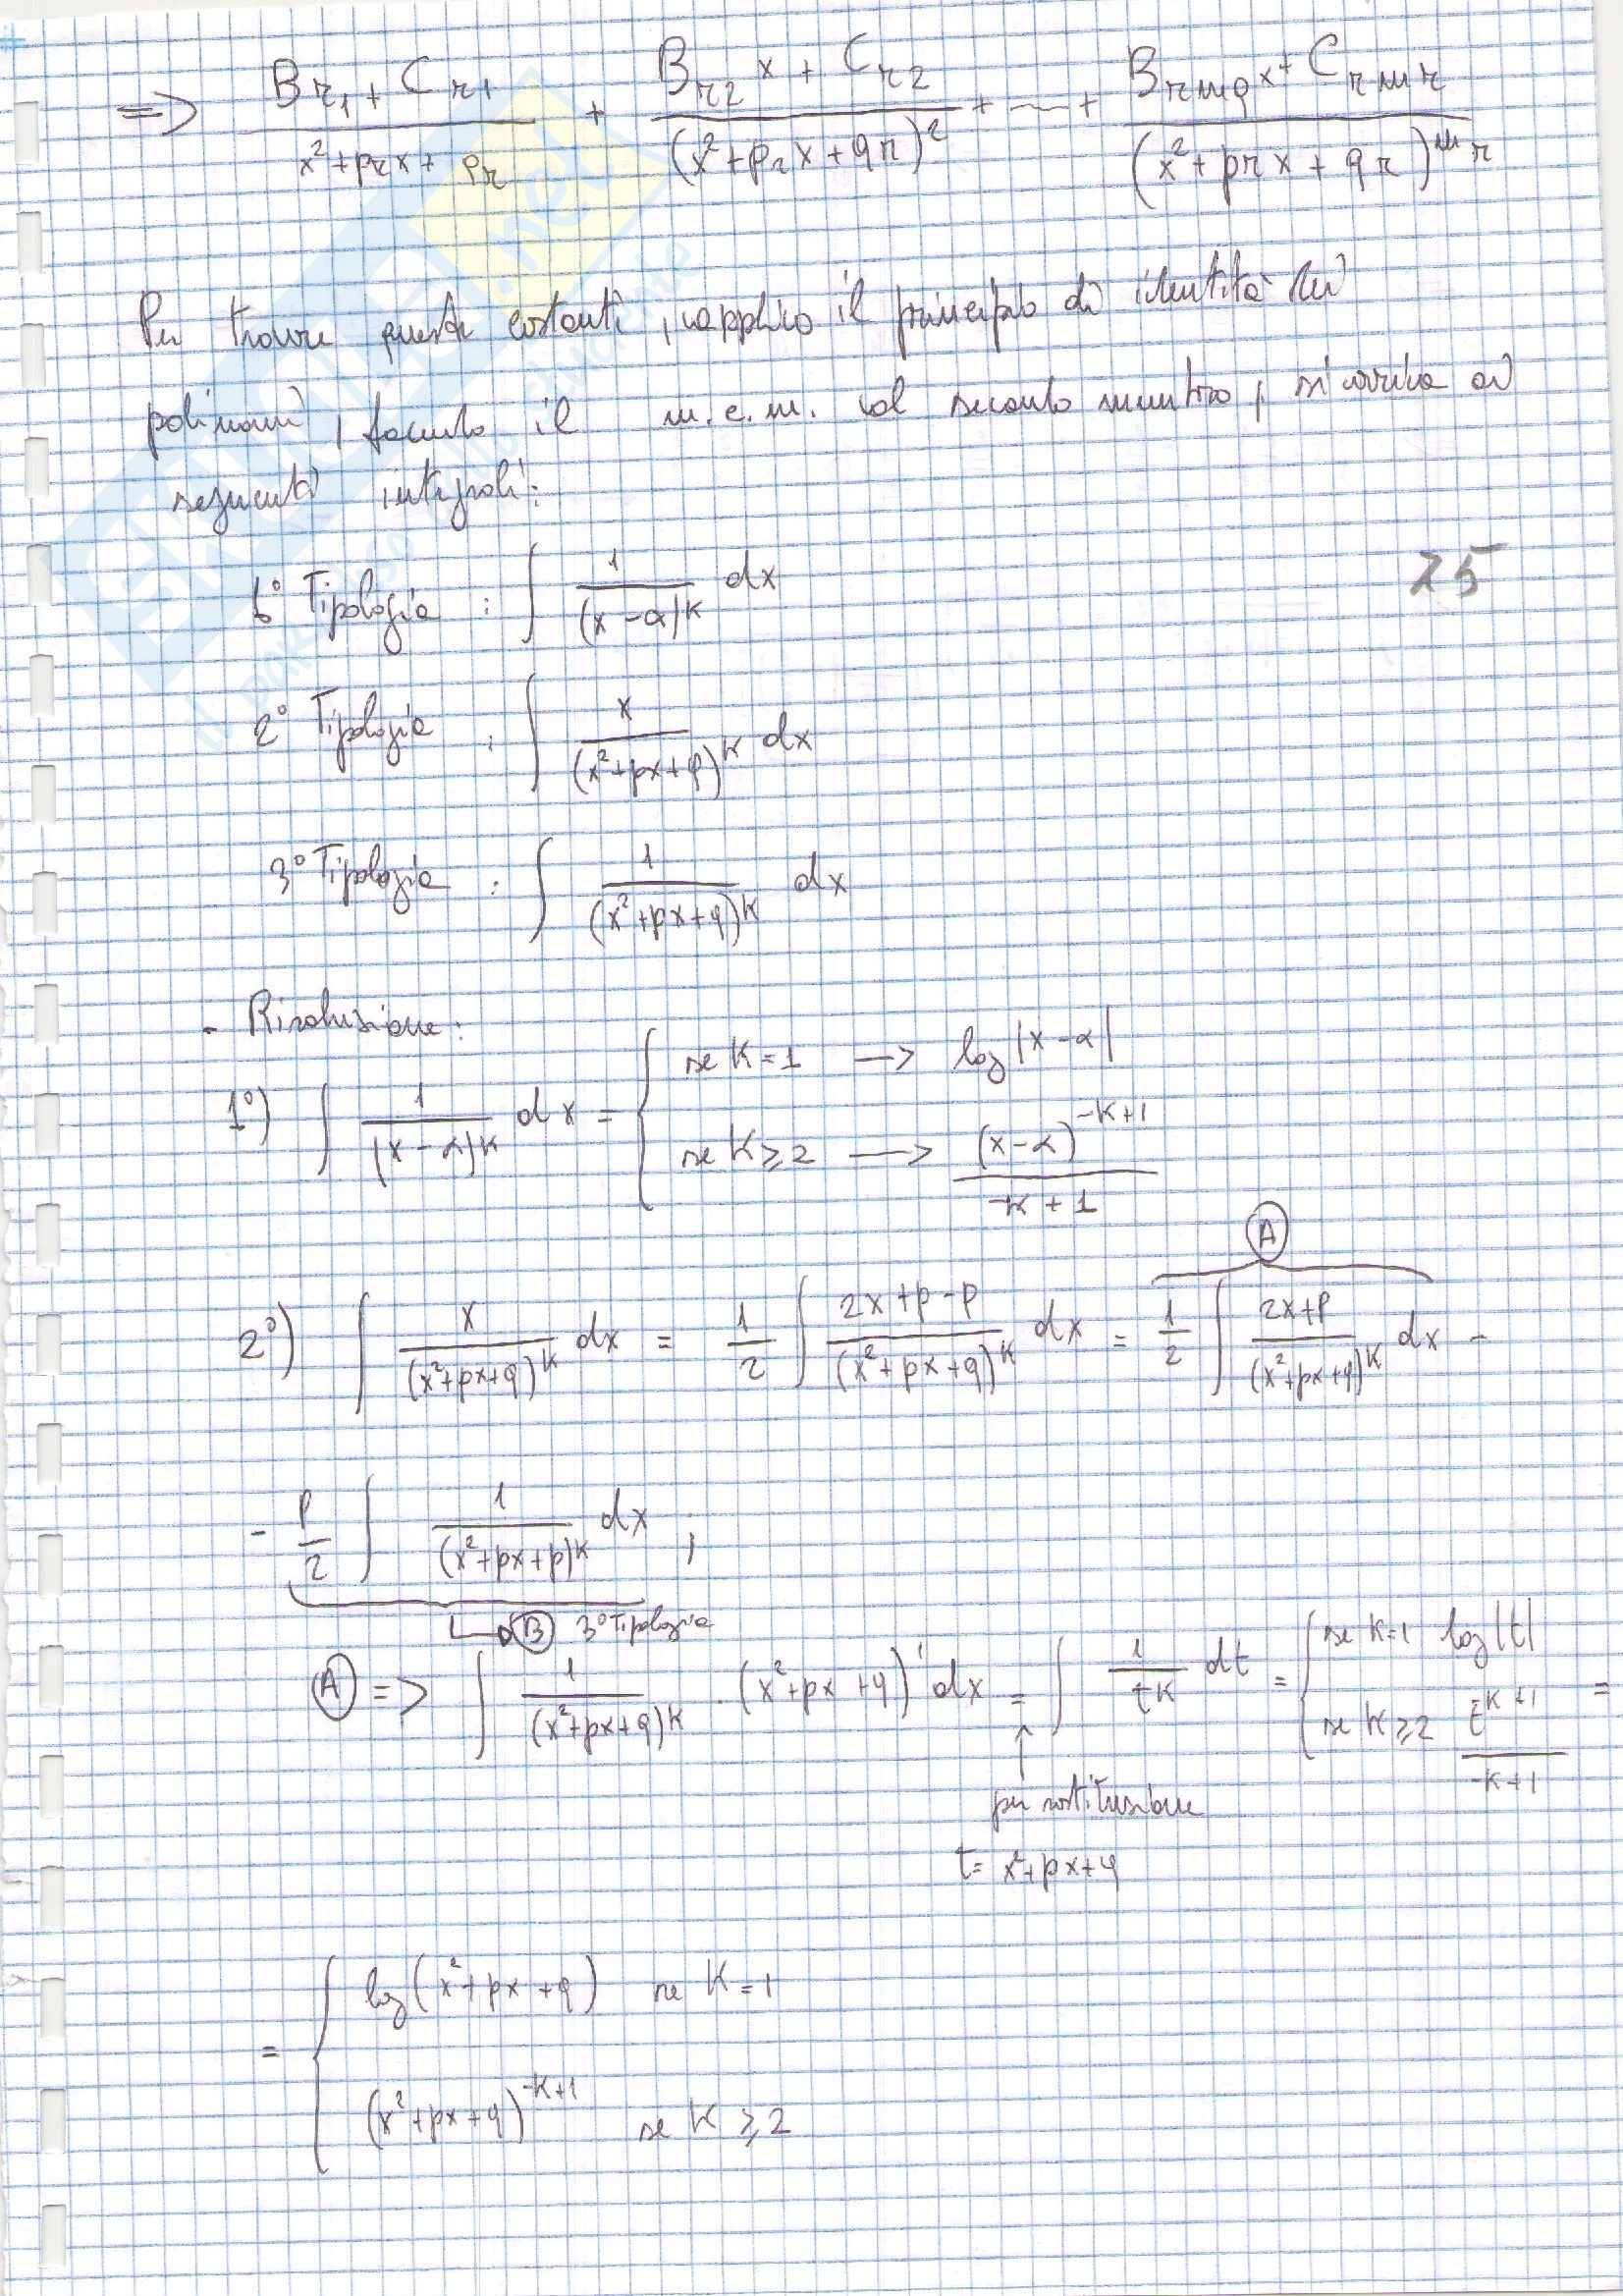 => (B_r1 + C_r1)/(x²+p_r x + q_r) + (B_r2 x + C_r2)/(x²+p_r x+q_r)² + ... + (B_rmq x + C_rmr)/(x²+p_r x + q_r)^m_r
Per trovare queste costanti, si applica il principio di identità dei
polinomi, facendo il m.c.m. al secondo membro, si arriva ai
seguenti integrali:
25
1° Tipologia : ∫ 1/(x-α)^K dx
2° Tipologia : ∫ x/(x²+px+q)^K dx
3° Tipologia : ∫ 1/(x²+px+q)^K dx
- Risoluzione:
1°) ∫ 1/(x-α)^K dx = { se K=1 —> log|x-α|
se K≥2 —> (x-α)^(-K+1)/(-K+1)
(A)
2°) ∫ x/(x²+px+q)^K dx = 1/2 ∫ (2x+p-p)/(x²+px+q)^K dx = 1/2 ∫ (2x+p)/(x²+px+q)^K dx -
- p/2 ∫ 1/(x²+px+p)^K dx ;
(B) 3° Tipologia
(A) => ∫ 1/(x²+px+q)^K · (x²+px+q)' dx = ∫ 1/t^K dt = { se K=1 log|t|
se K≥2 t^(-K+1)/(-K+1) =
per sostituzione
t= x²+px+q
= { log(x²+px+q) se K=1
(x²+px+q)^(-K+1) se K≥2